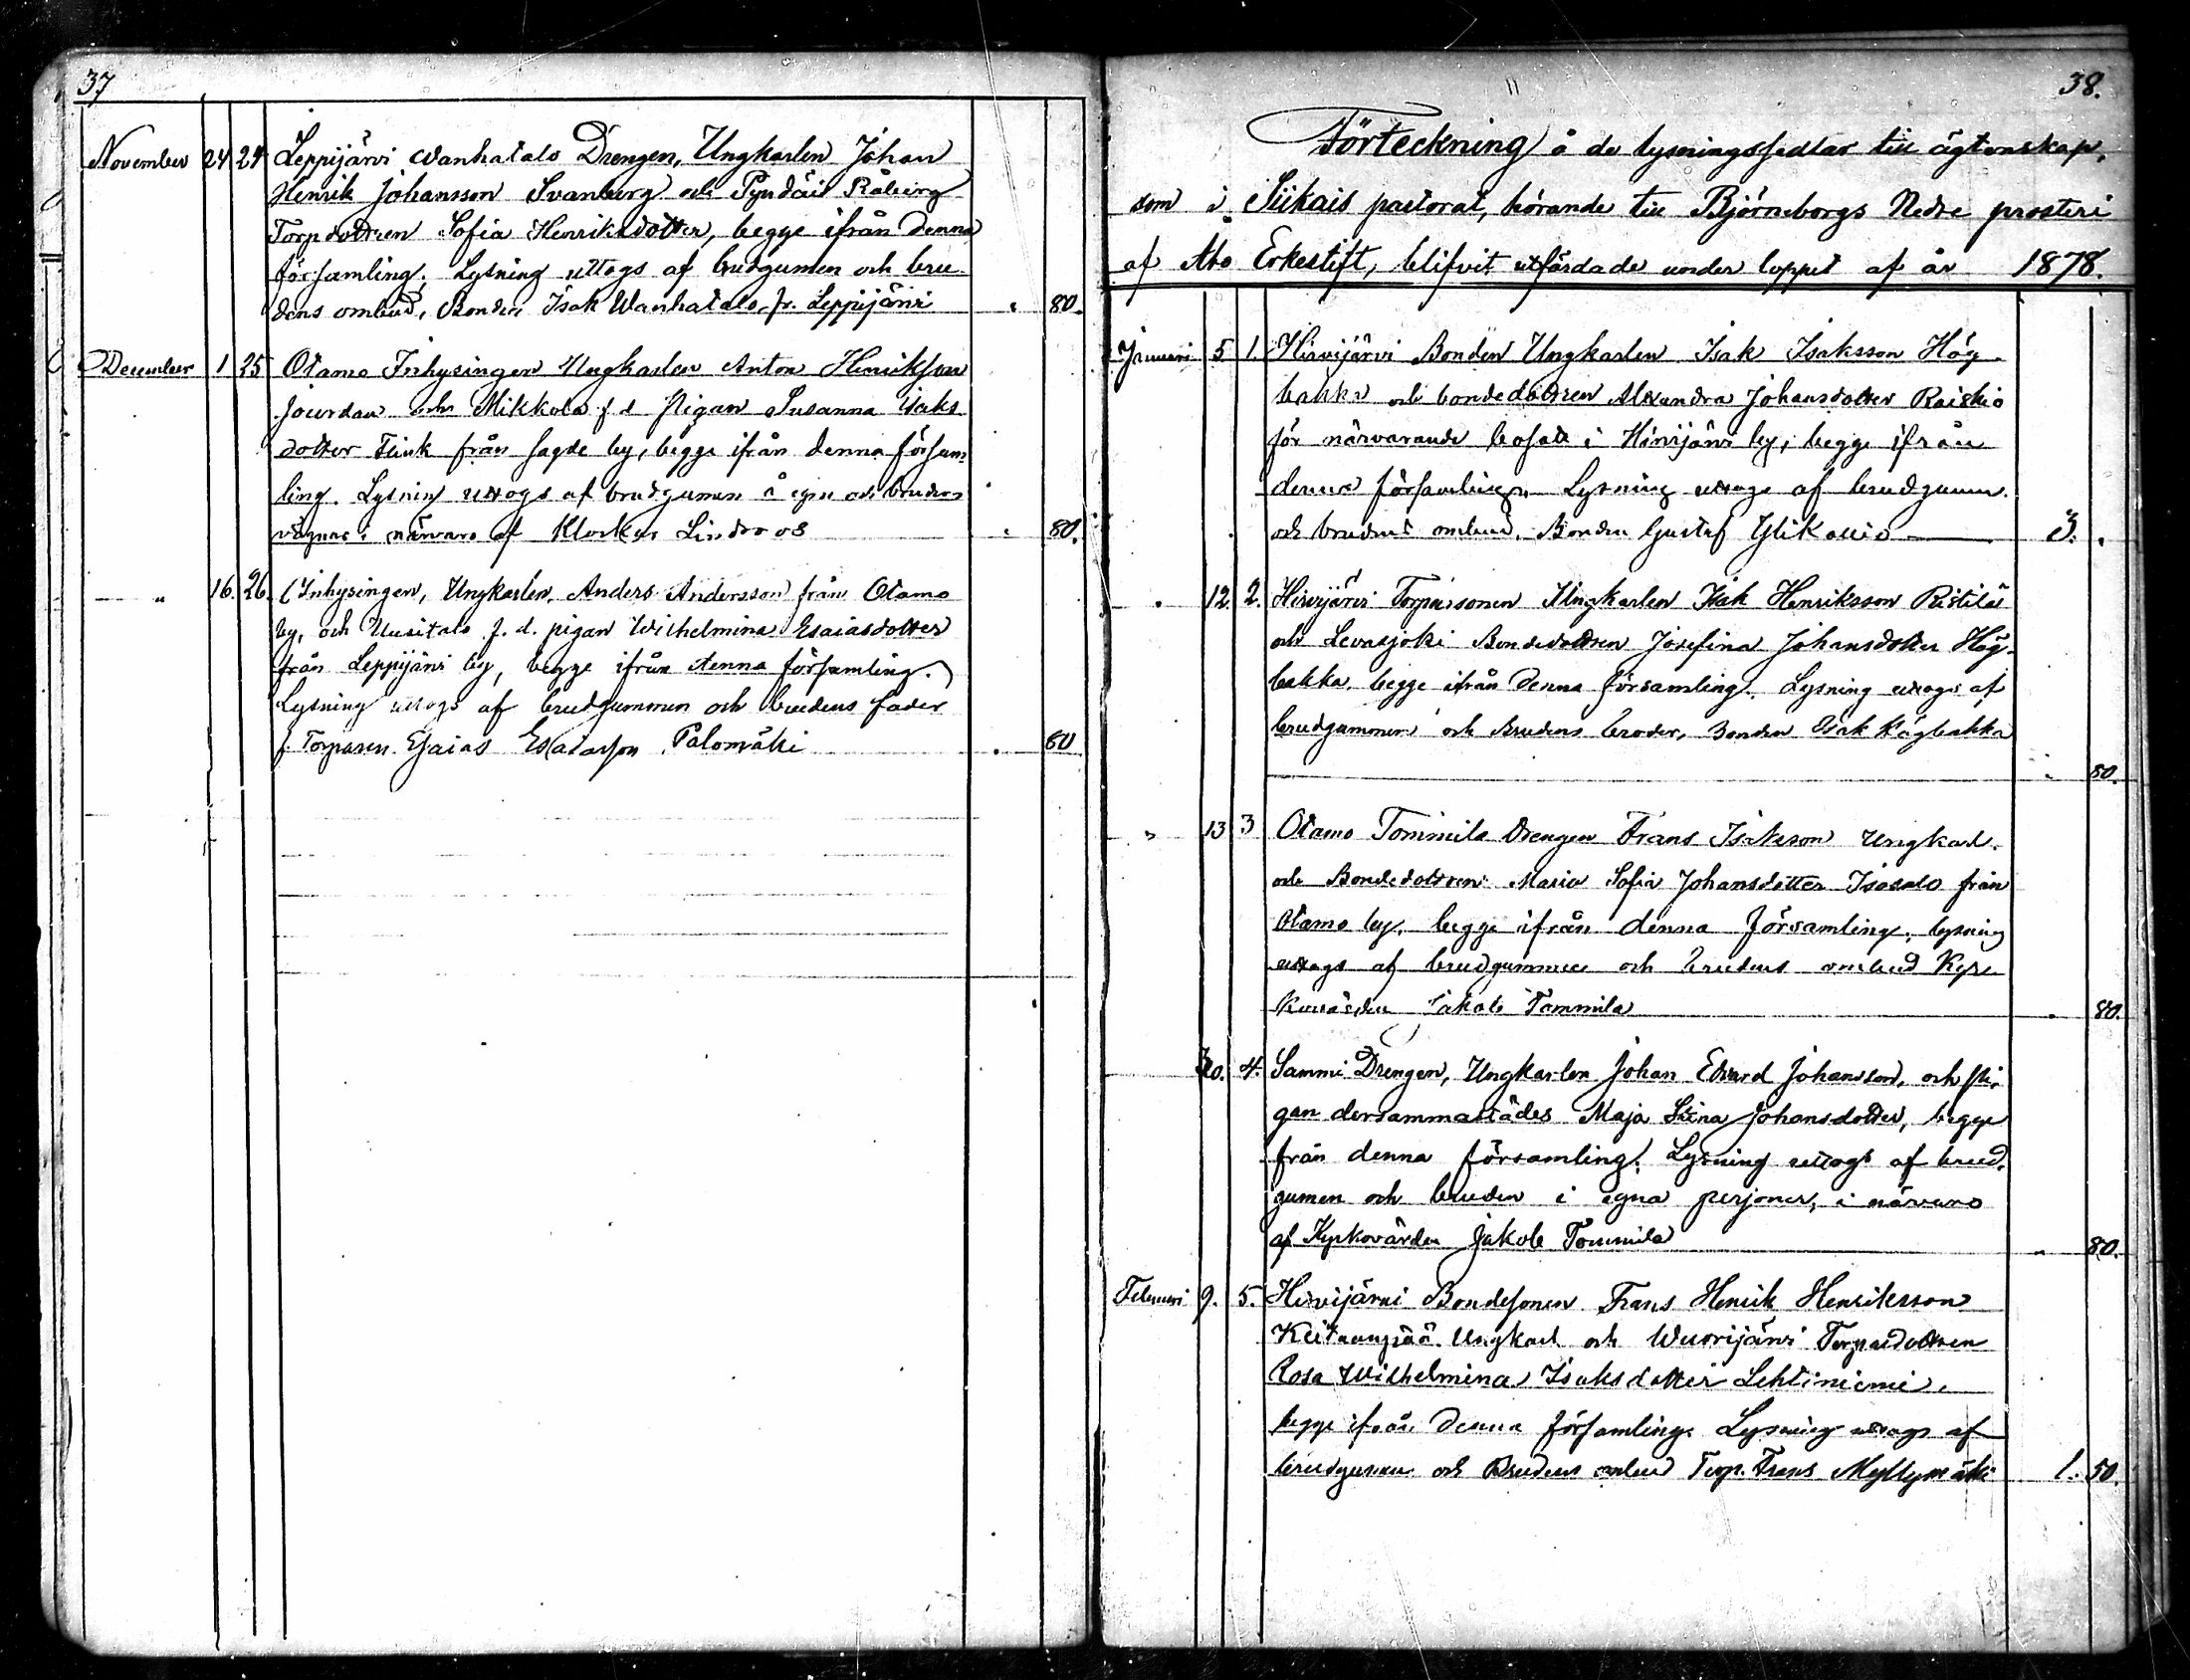 37
November 24 24 Leppijärvi Wanhatalo Drengen, Ungkarlen Johan
Henrik Johansson Svanberg och Råberg
Torpdottren Sofia Henriksdotter, begge ifrån denna
församling; Lysning uttogs af brudgumen och bru-
dens ombud, Bonden Isak Wanhatalo fr. Leppijärvi " 80.
December 1 25 Otamo Inhysingen Ungkarlen Anton Henriksson
Jourdan och Mikkola f d Pigan Susanna Isaks
dotter Flink från sagde by, begge ifrån denna försam
ling. Lysning uttogs af brudgumen å egna och brudens
vägnar i närvaro af Klockar Lindroos " 80.
" 16. 26. (Inhysingen, Ungkarlen Anders Andersson från Otamo
by, och Uusitalo f. d. pigan Wilhelmina Esaiasdotter
från Leppijärvi by, begge ifrån denna församling.)
Lysning uttogs af brudgummen och brudens fader
f. Torparen Esaias Esaiasson Palomäki " 80
38.
Förteckning å de lysningssedlar till ägtenskap,
som i Siikais pastorat, hörande till Björneborgs Nedre prosteri
af Åbo Erkestift, blifvit utfärdade under loppet af år 1878.
Januari 5 1. Hirvijärvi Bonden Ungkarlen Isak Isaksson Hög-
bakka och bondedottren Alexandra Johansdotter Raiskio
för närvarande bosatt i Hirvijärvi by, begge ifrån
denna församlingen Lysning uttogs af brudgumen
och brudens ombud, Bonden Gustaf Ylikallio 3. "
" 12. 2. Hirvijärvi Torparsonen Ungkarlen Isak Henriksson Ristilä
och Levasjoki Bondedottren Josefina Johansdotter Hög-
bakka, begge ifrån denna församling. Lysning uttogs af
brudgummen och Brudens broder, Bonden Isak Högbakka
" 80.
" 13 3 Otamo Tommila Drengen Frans Isaksson Ungkarl.
och Bondedottren Maria Sofia Johansdotter Isotalo från
Otamo by, begge ifrån denna församling, lysning
uttogs af brudgummen och brudens ombud Kyr-
kovärden Jakob Tommila " 80.
20. 4. Sammi Drengen, Ungkarlen Johan Edvard Johansson, och pi-
gan dersammastädes Maja Stina Johansdotter, begge
från denna församling. Lysning uttogs af brud-
gumen och bruden i egna personer, i närvaro
af Kyrkovärden Jakob Tommila " 80.
Februari 9. 5. Hirvijärvi Bondesonen Frans Henrik Henriksson
Keitaanpää Ungkarl och Wuorijärvi Torparedottren
Rosa Wilhelmina Isaksdotter Lehtiniemi,
begge ifrån denna församling. Lysning uttogs af
brudgumen och Brudens ombud Torp. Frans Myllymäki 1. 50.